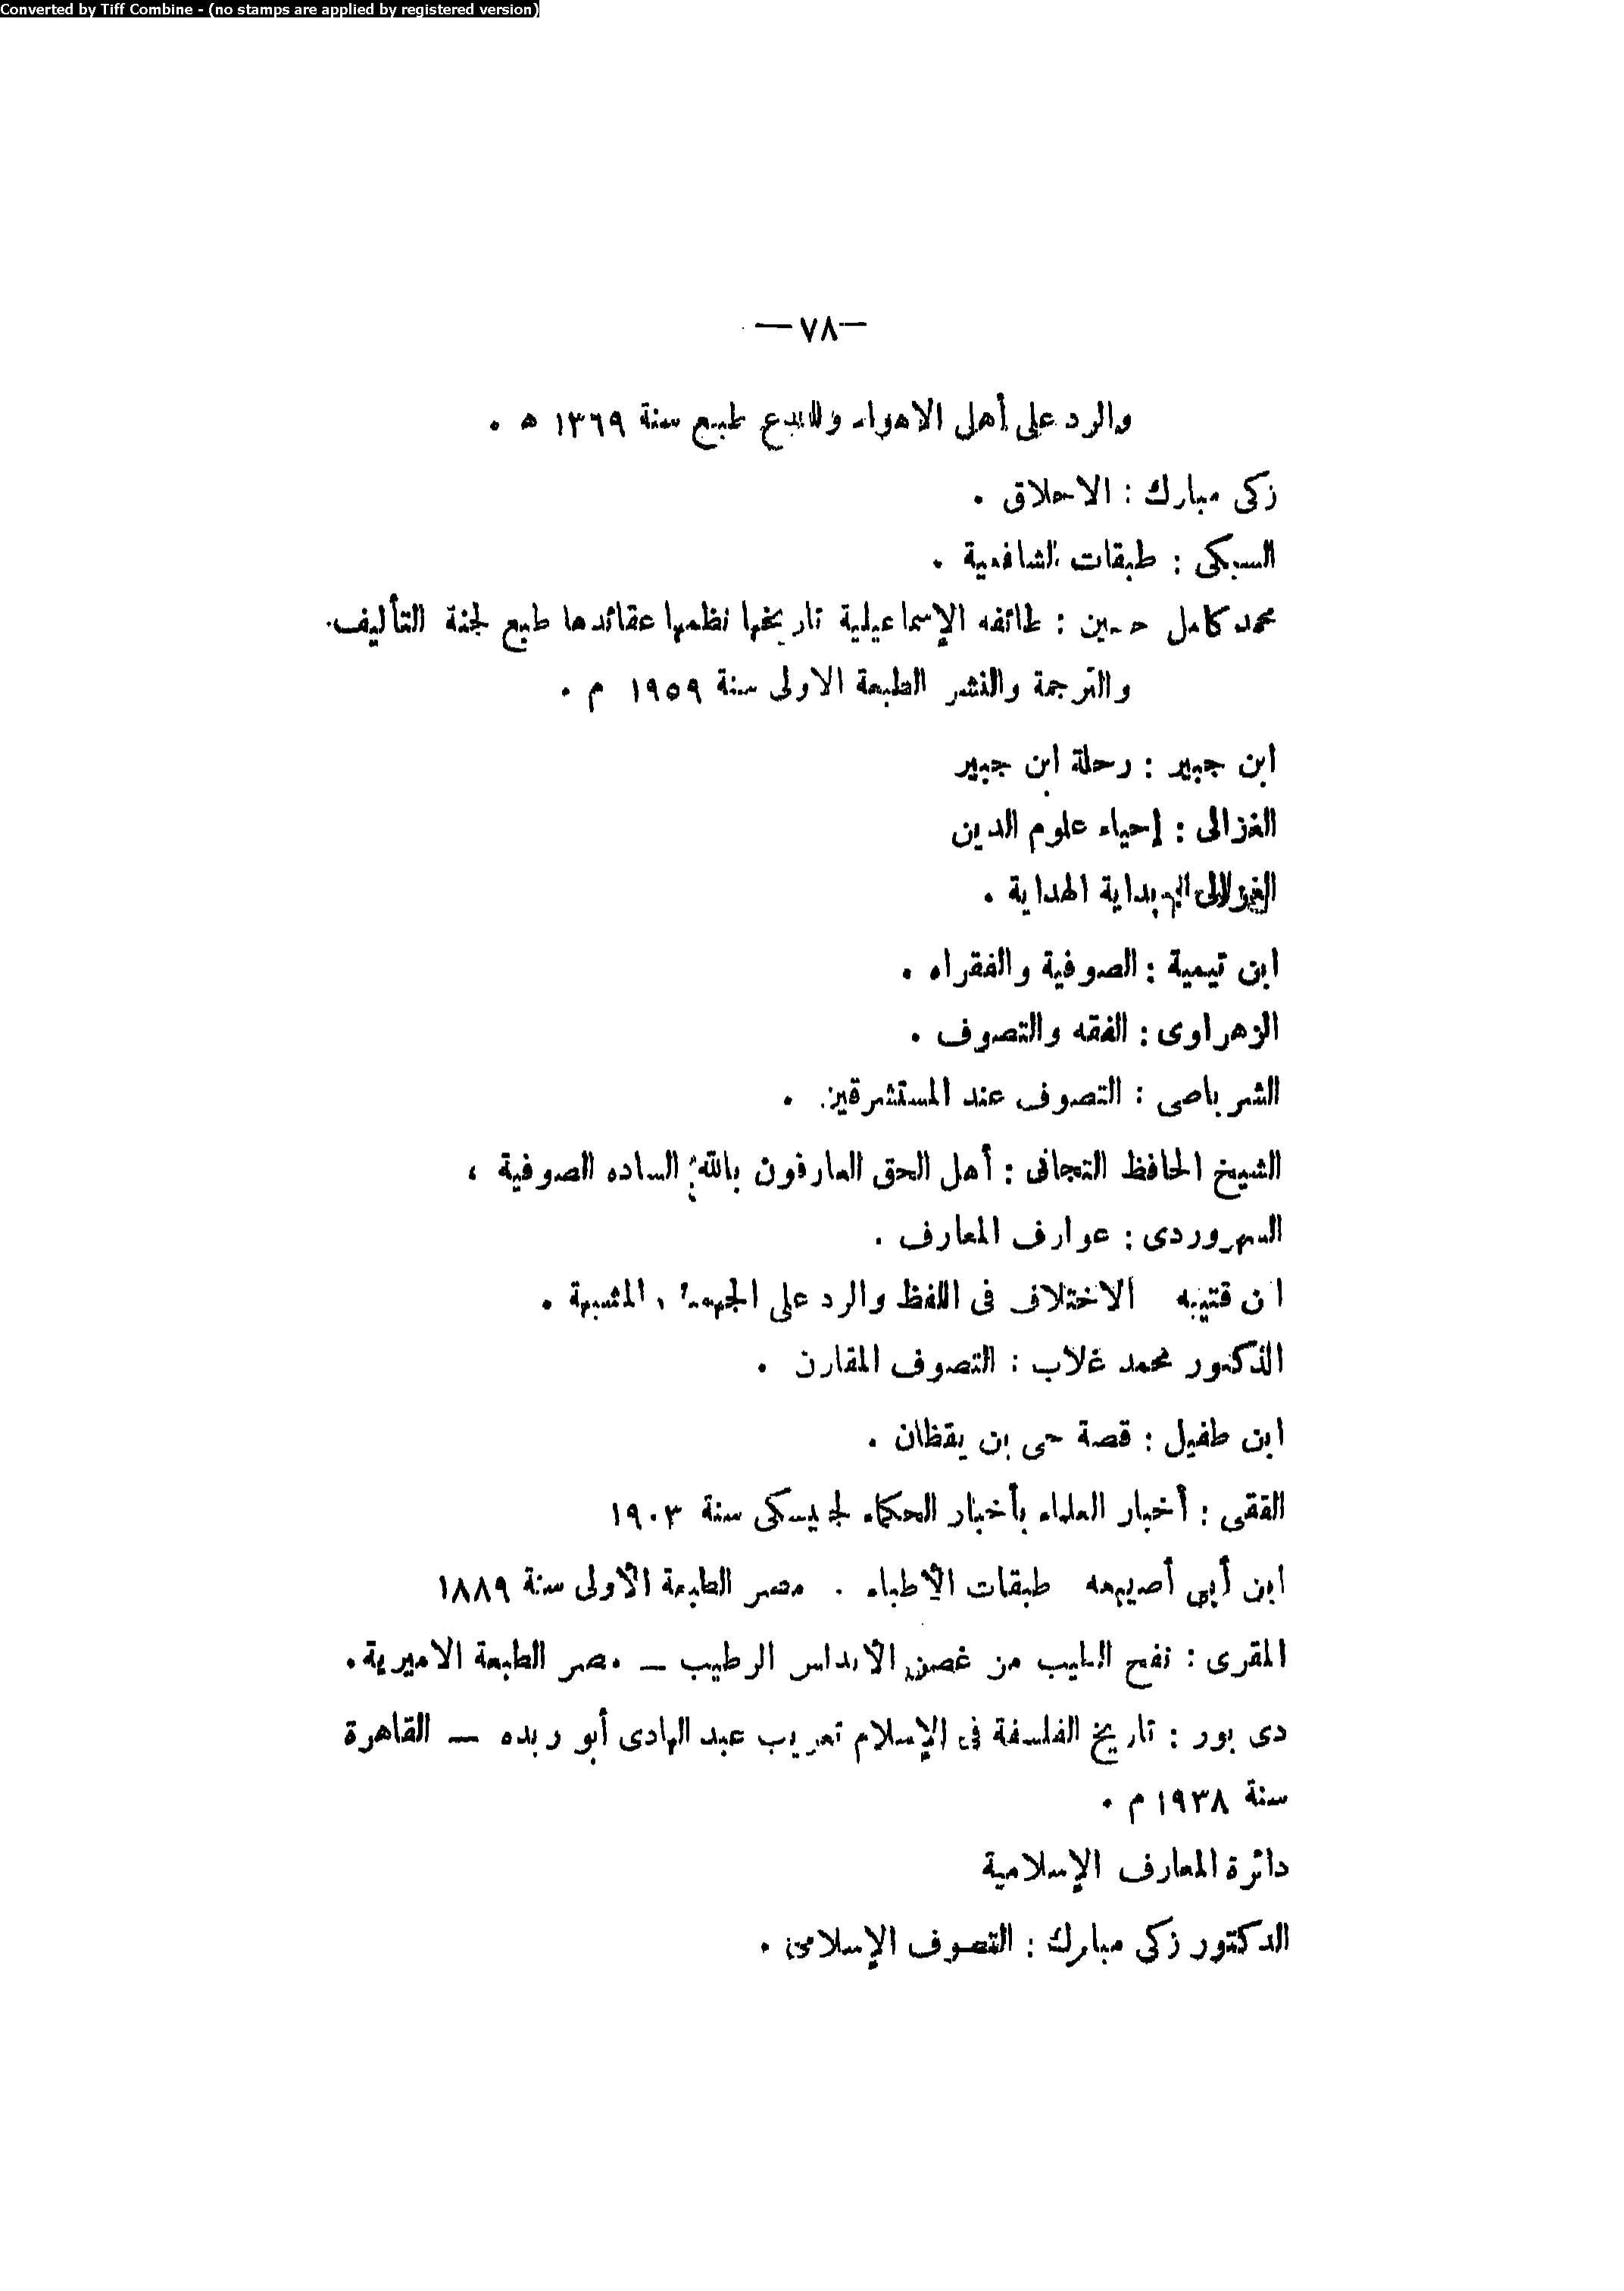 Converted by Tiff Combine - (no stamps are applied by registered version)
— ٧٨ —
والرد على أهل الاهواء والبدع طبع سنة ١٣٦٩ ه .
زكى مبارك : الاخلاق .
السبكى : طبقات الشافعية .
محمد كامل حسين : طائفه الإسماعيلية تاريخها نظمها عقائدها طبع لجنة التأليف
والترجمة والنشر الطبعة الاولى سنة ١٩٥٩ م .
ابن جبير : رحلة ابن جبير
الغزالى : إحياء علوم الدين
الغزالى بداية الهداية .
ابن تيمية : الصوفية والفقراء .
الزهراوى : الفقه والتصوف .
الشرباصى : التصوف عند المستشرقين .
الشيخ الحافظ التجانى : أهل الحق العارفون بالله الساده الصوفية ،
السهروردى : عوارف المعارف .
ابن قتيبه الاختلاف فى اللفظ والرد على الجهمية والمشبهة .
الدكتور محمد غلاب : التصوف المقارن .
ابن طفيل : قصة حى بن يقظان .
القفى : أخبار العلماء بأخبار الحكماء سنة ١٩٠٣
ابن أبى أصيبعه طبقات الأطباء . مصر الطبعة الأولى سنة ١٨٨٩
المقرى : نفح الطيب من غصن الأندلس الرطيب — مصر الطبعة الاميرية .
دى بور : تاريخ الفلسفة فى الإسلام تعريب عبد الهادى أبو ريده — القاهرة
سنة ١٩٣٨ م .
دائرة المعارف الإسلامية
الدكتور زكى مبارك : التصوف الإسلامى .